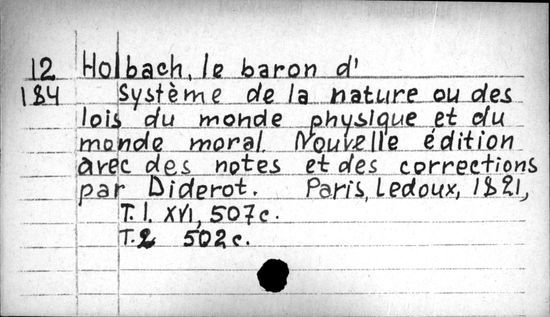 12 Holbach, le baron d'
184 Système de la nature ou des
lois du monde physique et du
monde moral. Nouvelle édition
avec des notes et des corrections
par Diderot. Paris, Ledoux, 1821,
T. 1. XVI, 507 c.
T. 2 502 c.